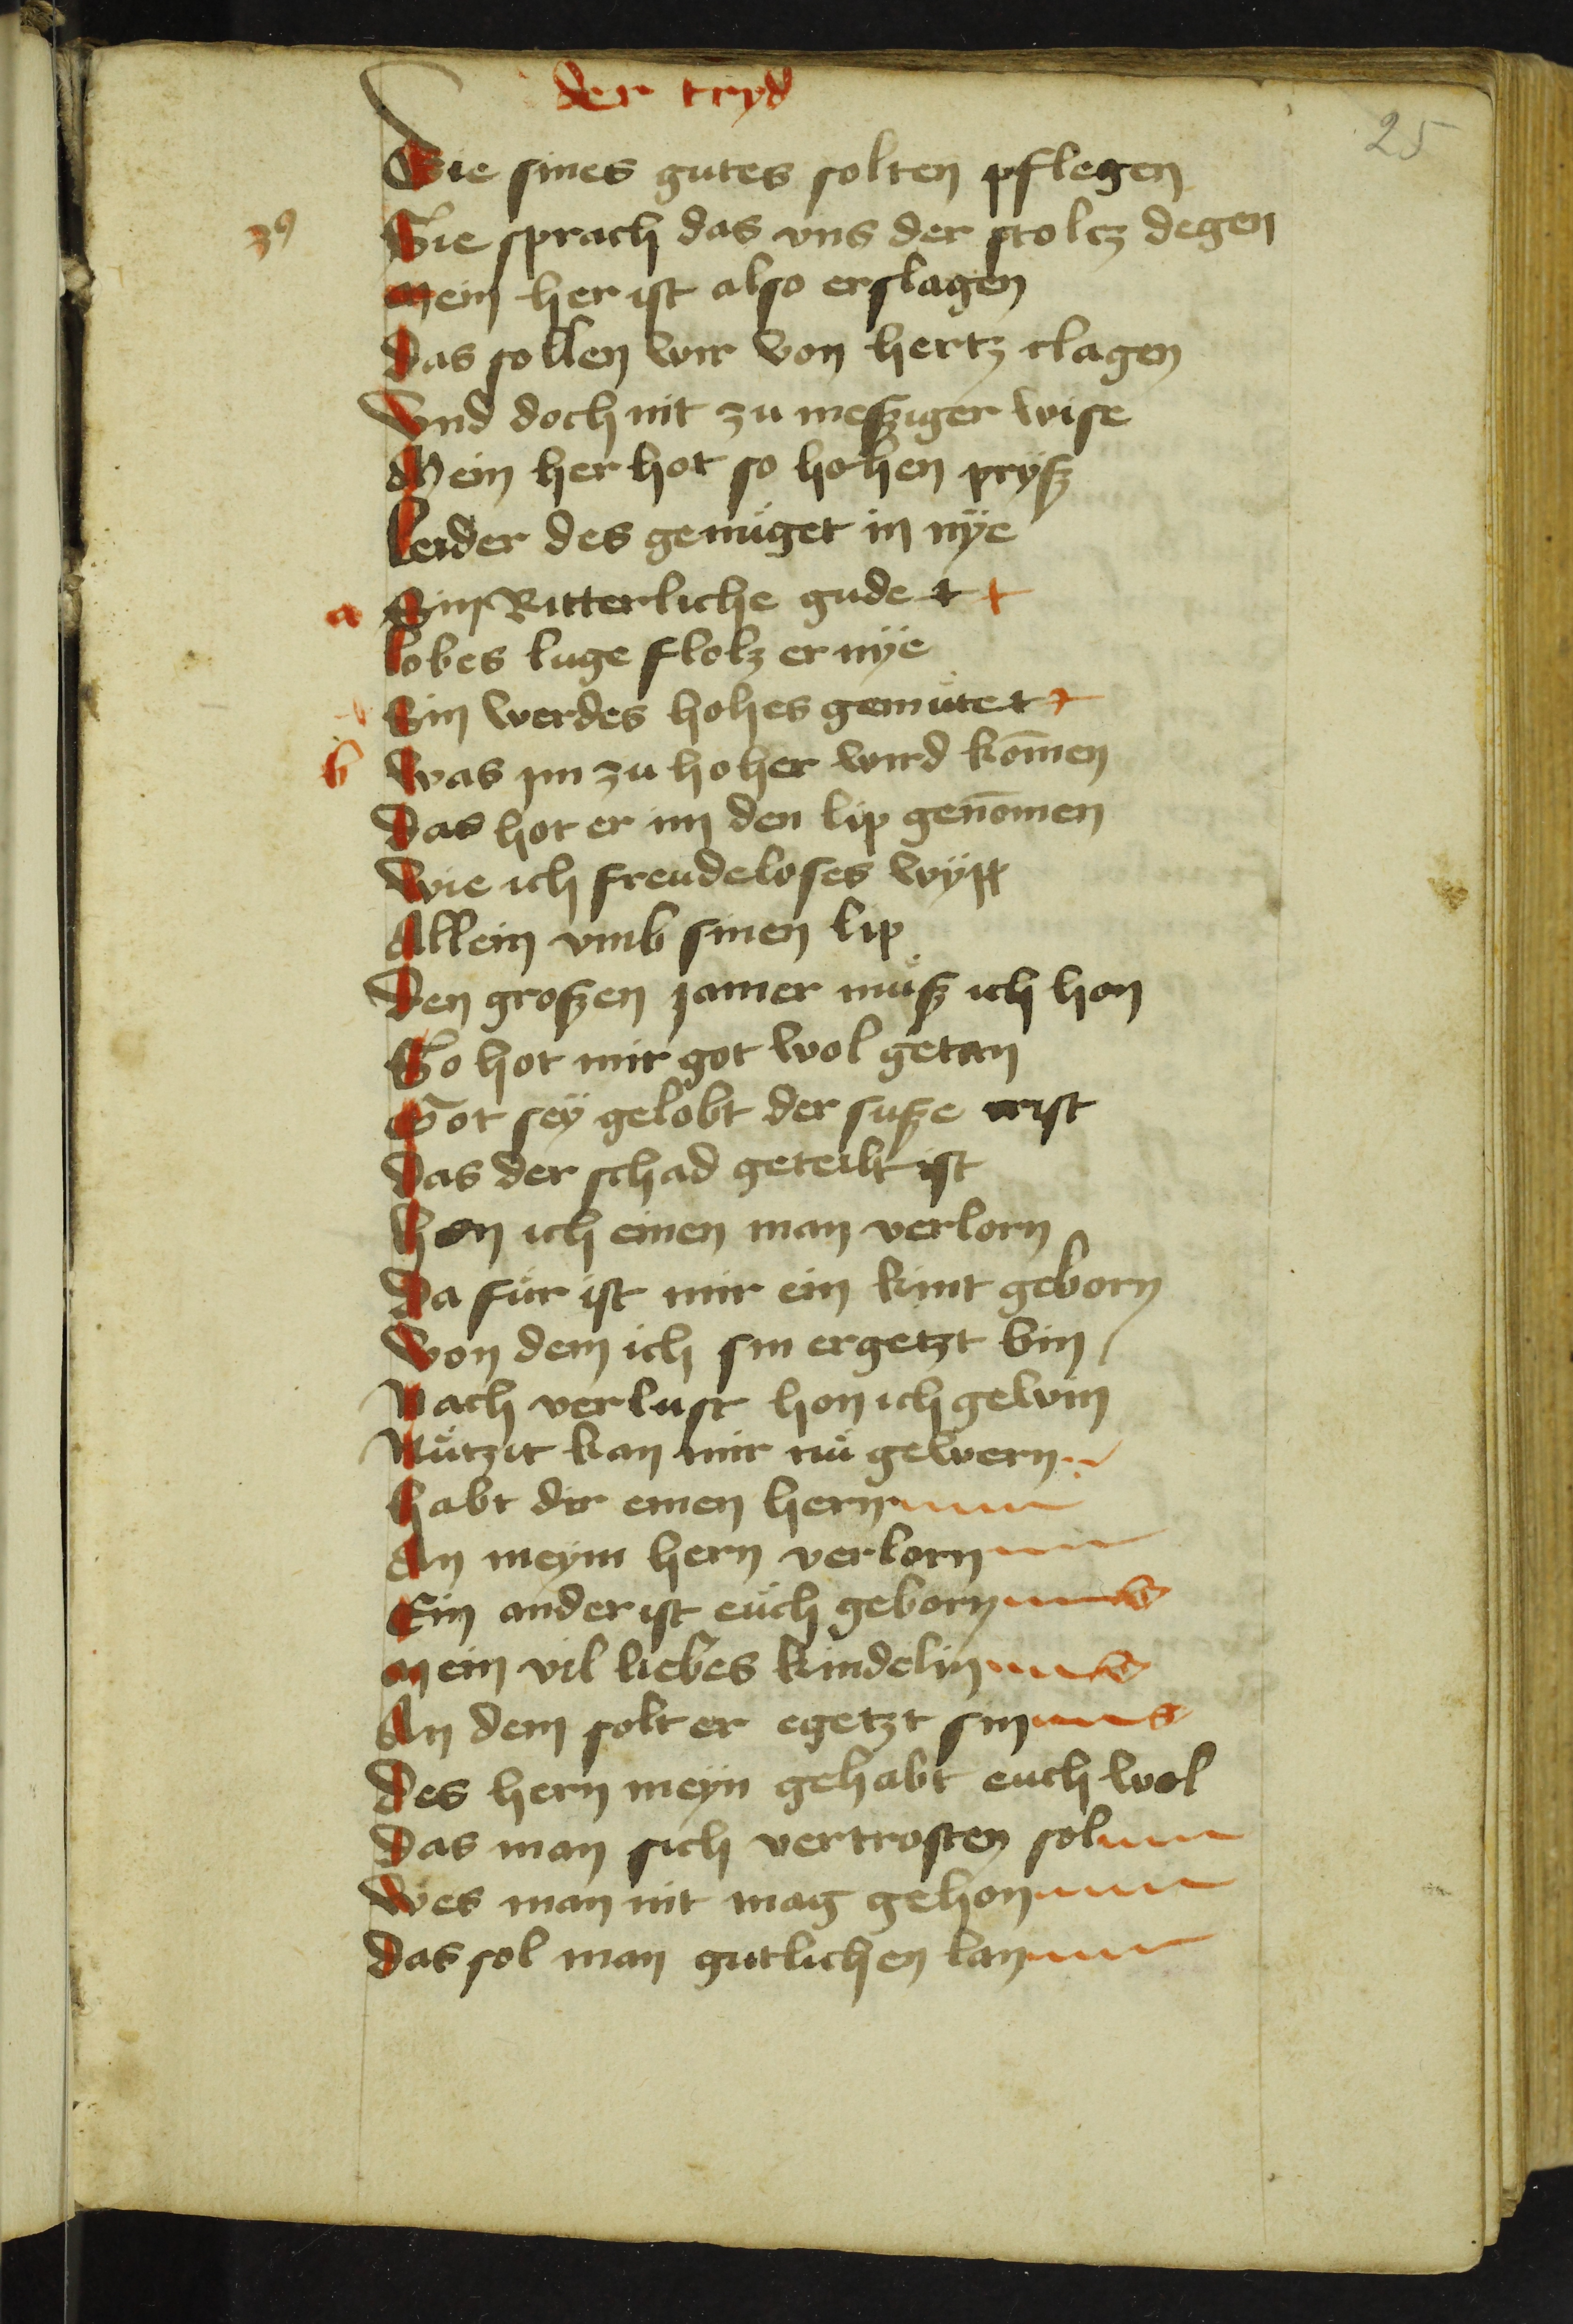 der tryd
25
Die sines gutes solten pflegen
39
Sie sprach das vns der stolcz degen
Mein her ist also erslagen
Das sollen wir von hertz clagen
Vnd doch nit zu meßziger wise
Mein her hot so hohen pryß
Leider des genuget in nye
a
Sin Ritterliche gude t t
Lobes luge flolz er nÿe
Sin werdes hohes gemüte t t
b
Was im zu hoher wird kom̄en
Das hot er im den lip genom̄en
Wie ich freudeloses wÿp
Allein vmb sinen lip
Den großen jamer muß ich hon
So hot mir got wol getan
Got sey gelobt der suße crist
Das der schad geteilt ist
Hon ich einen man verlorn
Da für ist mir ein kint geborn
Von dem ich sin ergetzt bin
Nach verlust hon ich gewin
Nützit kan mir nü gewern
Habt dir einen hern
An meym hern verlorn
Ein ander ist euch geborn
Mein vil liebes kindelin
An dem solt er egetzt sin
Des hern meyn gehabt euch wol
Das man sich vertrosten sol
Wes man nit mag gehon
Das sol man gutlichen lan